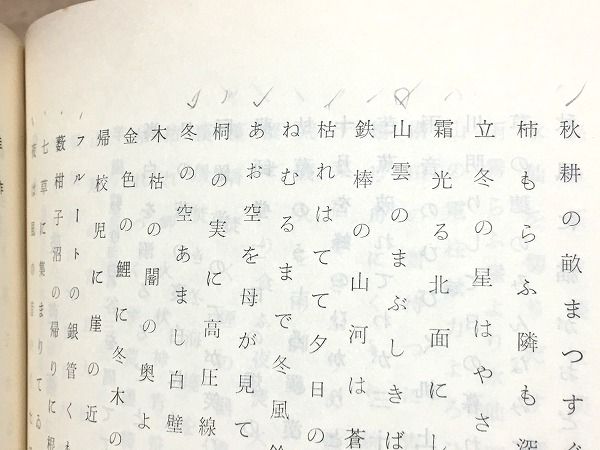 秋耕の畝まつすぐ
柿もらふ隣も深
立冬の星はやさ
霜光る北面にし
山雲のまぶしきば
鉄棒の山河は蒼
枯れはてて夕日の
ねむるまで冬風鈴
あお空を母が見て
桐の実に高圧線
冬の空あまし白壁
木枯の闇の奥よ
金色の鯉に冬木の
帰校児に崖の近
フルートの銀管くも
藪柑子沼の帰りに根
七草に集まりてる
夜は風の